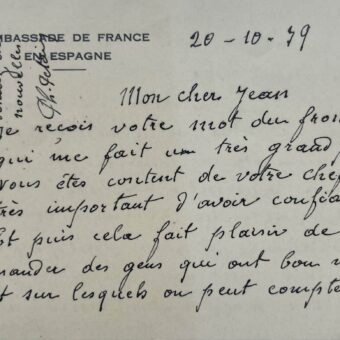 MBASSADE DE FRANCE
EN ESPAGNE
nouvelles
Ph. Pétain
20-10-39
Mon cher Jean
Je reçois votre mot du fron
qui me fait un très grand p
vous êtes content de votre chef
très important d'avoir confia
Et puis cela fait plaisir de
mander des gens qui ont bon
et sur lesquels on peut compte